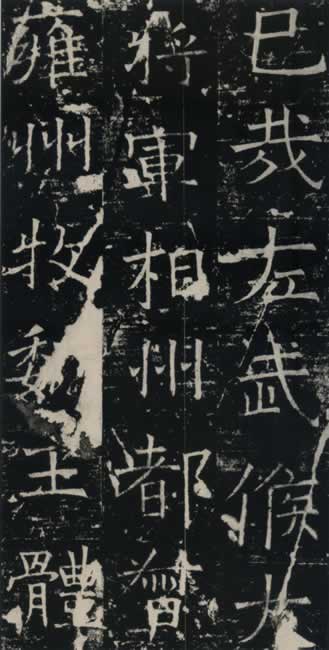 已哉左武候大
將軍相州都督
雍州牧魏王體